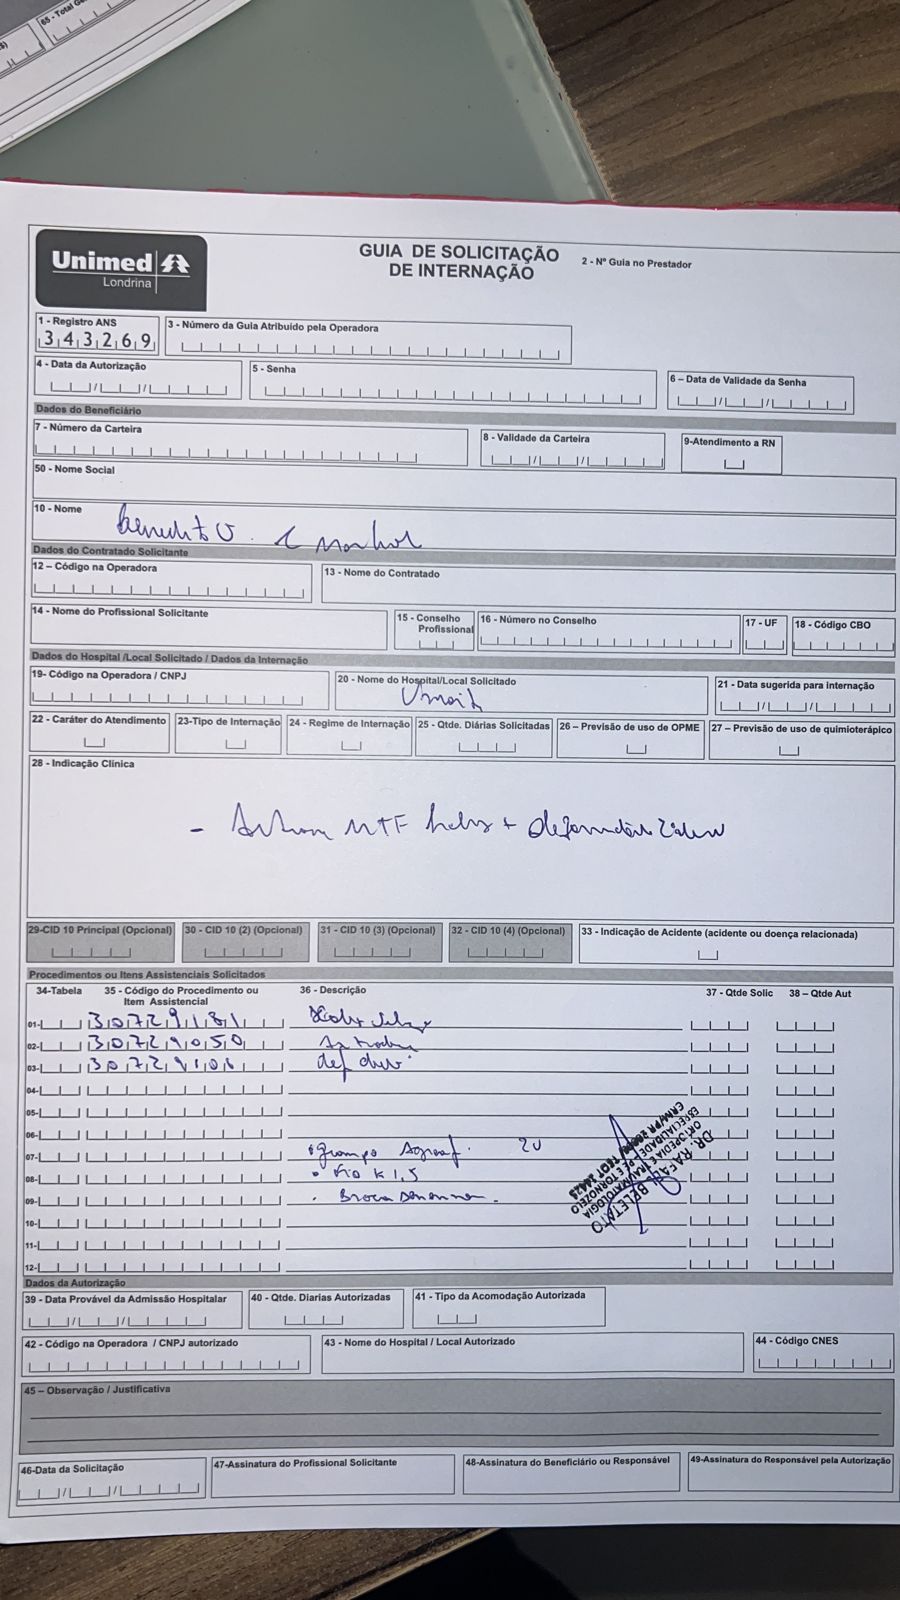 65 - Total G
Unimed
Londrina
GUIA DE SOLICITAÇÃO
DE INTERNAÇÃO
2 - Nº Guia no Prestador
1 - Registro ANS
343269
3 - Número da Guia Atribuído pela Operadora
4 - Data da Autorização
5 - Senha
6 – Data de Validade da Senha
Dados do Beneficiário
7 - Número da Carteira
8 - Validade da Carteira
9-Atendimento a RN
50 - Nome Social
10 - Nome
Dados do Contratado Solicitante
12 – Código na Operadora
13 - Nome do Contratado
14 - Nome do Profissional Solicitante
15 - Conselho
Profissional
16 - Número no Conselho
17 - UF
18 - Código CBO
Dados do Hospital /Local Solicitado / Dados da Internação
19- Código na Operadora / CNPJ
20 - Nome do Hospital/Local Solicitado
21 - Data sugerida para internação
22 - Caráter do Atendimento
23-Tipo de Internação
24 - Regime de Internação
25 - Qtde. Diárias Solicitadas
26 – Previsão de uso de OPME
27 – Previsão de uso de quimioterápico
28 - Indicação Clínica
- MTF +
29-CID 10 Principal (Opcional)
30 - CID 10 (2) (Opcional)
31 - CID 10 (3) (Opcional)
32 - CID 10 (4) (Opcional)
33 - Indicação de Acidente (acidente ou doença relacionada)
Procedimentos ou Itens Assistenciais Solicitados
34-Tabela
35 - Código do Procedimento ou
Item Assistencial
36 - Descrição
37 - Qtde Solic
38 – Qtde Aut
01-
02- 30729050
03- def
04-
05-
06-
07- Grampo 20
08- Fio K 1,5
09- Broca
10-
11-
12-
DR. RAFAEL BELETATO
ORTOPEDIA E TRAUMATOLOGIA
ESPECIALIDADE PÉ E TORNOZELO
CRM/PR TEOT
Dados da Autorização
39 - Data Provável da Admissão Hospitalar
40 - Qtde. Diarias Autorizadas
41 - Tipo da Acomodação Autorizada
42 - Código na Operadora / CNPJ autorizado
43 - Nome do Hospital / Local Autorizado
44 - Código CNES
45 – Observação / Justificativa
46-Data da Solicitação
47-Assinatura do Profissional Solicitante
48-Assinatura do Beneficiário ou Responsável
49-Assinatura do Responsável pela Autorização